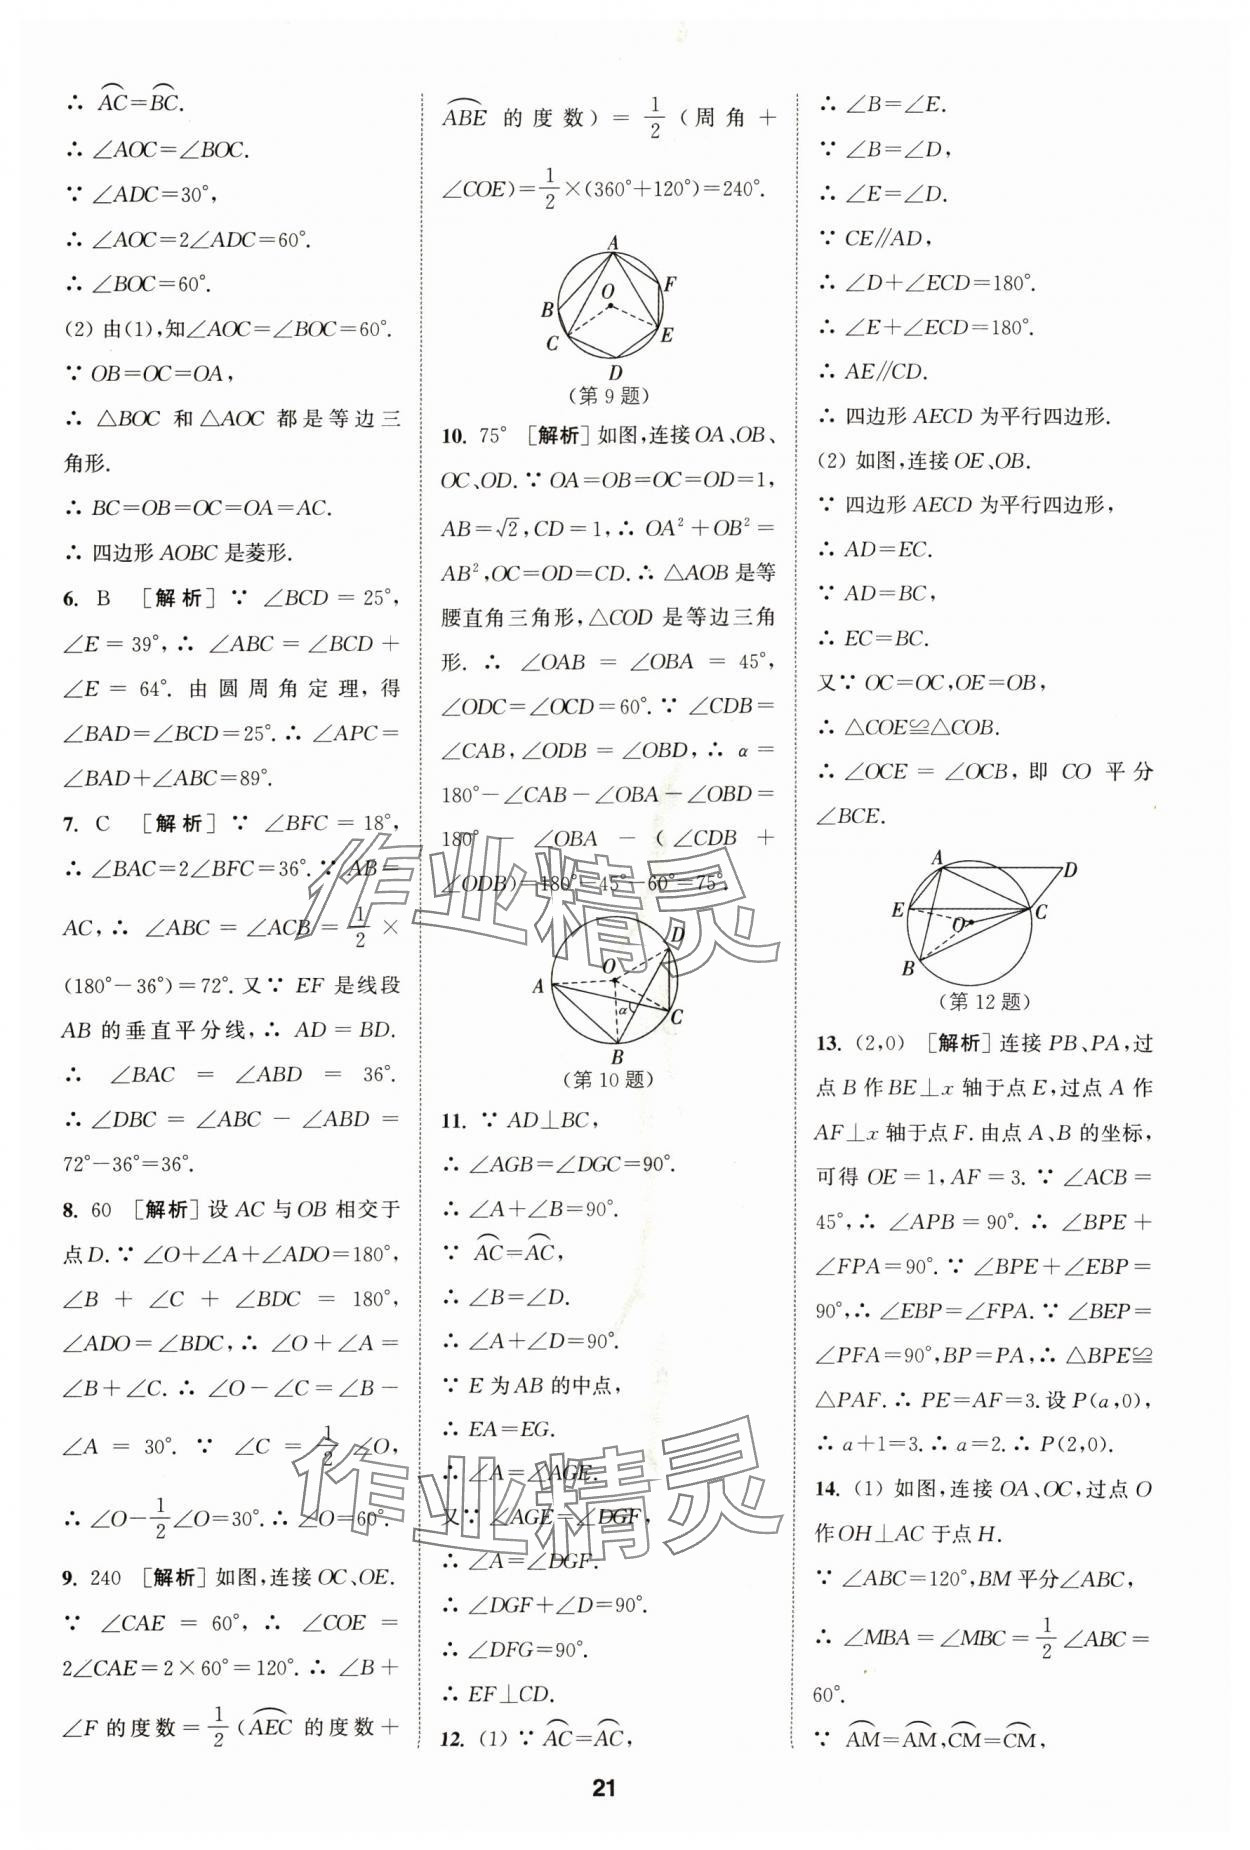 ∴ AC⌒=BC⌒.
∴ ∠AOC=∠BOC.
∵ ∠ADC=30°,
∴ ∠AOC=2∠ADC=60°.
∴ ∠BOC=60°.
(2) 由(1),知∠AOC=∠BOC=60°.
∵ OB=OC=OA,
∴ △BOC 和△AOC 都是等边三
角形.
∴ BC=OB=OC=OA=AC.
∴ 四边形 AOBC 是菱形.
6. B [解析] ∵ ∠BCD=25°,
∠E=39°,∴ ∠ABC=∠BCD+
∠E=64°. 由圆周角定理,得
∠BAD=∠BCD=25°.∴ ∠APC=
∠BAD+∠ABC=89°.
7. C [解析] ∵ ∠BFC=18°,
∴ ∠BAC=2∠BFC=36°.∵ AB=
AC,∴ ∠ABC=∠ACB=1/2×
(180°-36°)=72°. 又∵ EF 是线段
AB 的垂直平分线,∴ AD=BD.
∴ ∠BAC=∠ABD=36°.
∴ ∠DBC=∠ABC-∠ABD=
72°-36°=36°.
8. 60 [解析] 设 AC 与 OB 相交于
点 D.∵ ∠O+∠A+∠ADO=180°,
∠B+∠C+∠BDC=180°,
∠ADO=∠BDC,∴ ∠O+∠A=
∠B+∠C.∴ ∠O-∠C=∠B-
∠A=30°. ∵ ∠C=1/2∠O,
∴ ∠O-1/2∠O=30°.∴ ∠O=60°.
9. 240 [解析] 如图,连接 OC、OE.
∵ ∠CAE=60°,∴ ∠COE=
2∠CAE=2×60°=120°.∴ ∠B+
∠F 的度数=1/2(AEC⌒ 的度数+
ABE⌒ 的度数)=1/2(周角+
∠COE)=1/2×(360°+120°)=240°.
A
F
B
O
C
E
D
(第 9 题)
10. 75° [解析] 如图,连接 OA、OB、
OC、OD.∵ OA=OB=OC=OD=1,
AB=√2,CD=1,∴ OA²+OB²=
AB²,OC=OD=CD.∴ △AOB 是等
腰直角三角形,△COD 是等边三角
形. ∴ ∠OAB=∠OBA=45°,
∠ODC=∠OCD=60°.∵ ∠CDB=
∠CAB,∠ODB=∠OBD,∴ α=
180°-∠CAB-∠OBA-∠OBD=
180°-∠OBA-(∠CDB+
∠ODB)=180°-45°-60°=75°.
D
O
A
α
C
B
(第 10 题)
11. ∵ AD⊥BC,
∴ ∠AGB=∠DGC=90°.
∴ ∠A+∠B=90°.
∵ AC⌒=AC⌒,
∴ ∠B=∠D.
∴ ∠A+∠D=90°.
∵ E 为 AB 的中点,
∴ EA=EG.
∴ ∠A=∠AGE.
又∵ ∠AGE=∠DGF,
∴ ∠A=∠DGF.
∴ ∠DGF+∠D=90°.
∴ ∠DFG=90°.
∴ EF⊥CD.
12. (1) ∵ AC⌒=AC⌒,
∴ ∠B=∠E.
∵ ∠B=∠D,
∴ ∠E=∠D.
∵ CE∥AD,
∴ ∠D+∠ECD=180°.
∴ ∠E+∠ECD=180°.
∴ AE∥CD.
∴ 四边形 AECD 为平行四边形.
(2) 如图,连接 OE、OB.
∵ 四边形 AECD 为平行四边形,
∴ AD=EC.
∵ AD=BC,
∴ EC=BC.
又∵ OC=OC,OE=OB,
∴ △COE≌△COB.
∴ ∠OCE=∠OCB,即 CO 平分
∠BCE.
A
D
E
O
C
B
(第 12 题)
13. (2,0) [解析] 连接 PB、PA,过
点 B 作 BE⊥x 轴于点 E,过点 A 作
AF⊥x 轴于点 F. 由点 A、B 的坐标,
可得 OE=1,AF=3.∵ ∠ACB=
45°,∴ ∠APB=90°.∴ ∠BPE+
∠FPA=90°.∵ ∠BPE+∠EBP=
90°,∴ ∠EBP=∠FPA.∵ ∠BEP=
∠PFA=90°,BP=PA,∴ △BPE≌
△PAF.∴ PE=AF=3. 设 P(a,0),
∴ a+1=3.∴ a=2.∴ P(2,0).
14. (1) 如图,连接 OA、OC,过点 O
作 OH⊥AC 于点 H.
∵ ∠ABC=120°,BM 平分∠ABC,
∴ ∠MBA=∠MBC=1/2∠ABC=
60°.
∵ AM⌒=AM⌒,CM⌒=CM⌒,
21
作业精灵
作业精灵